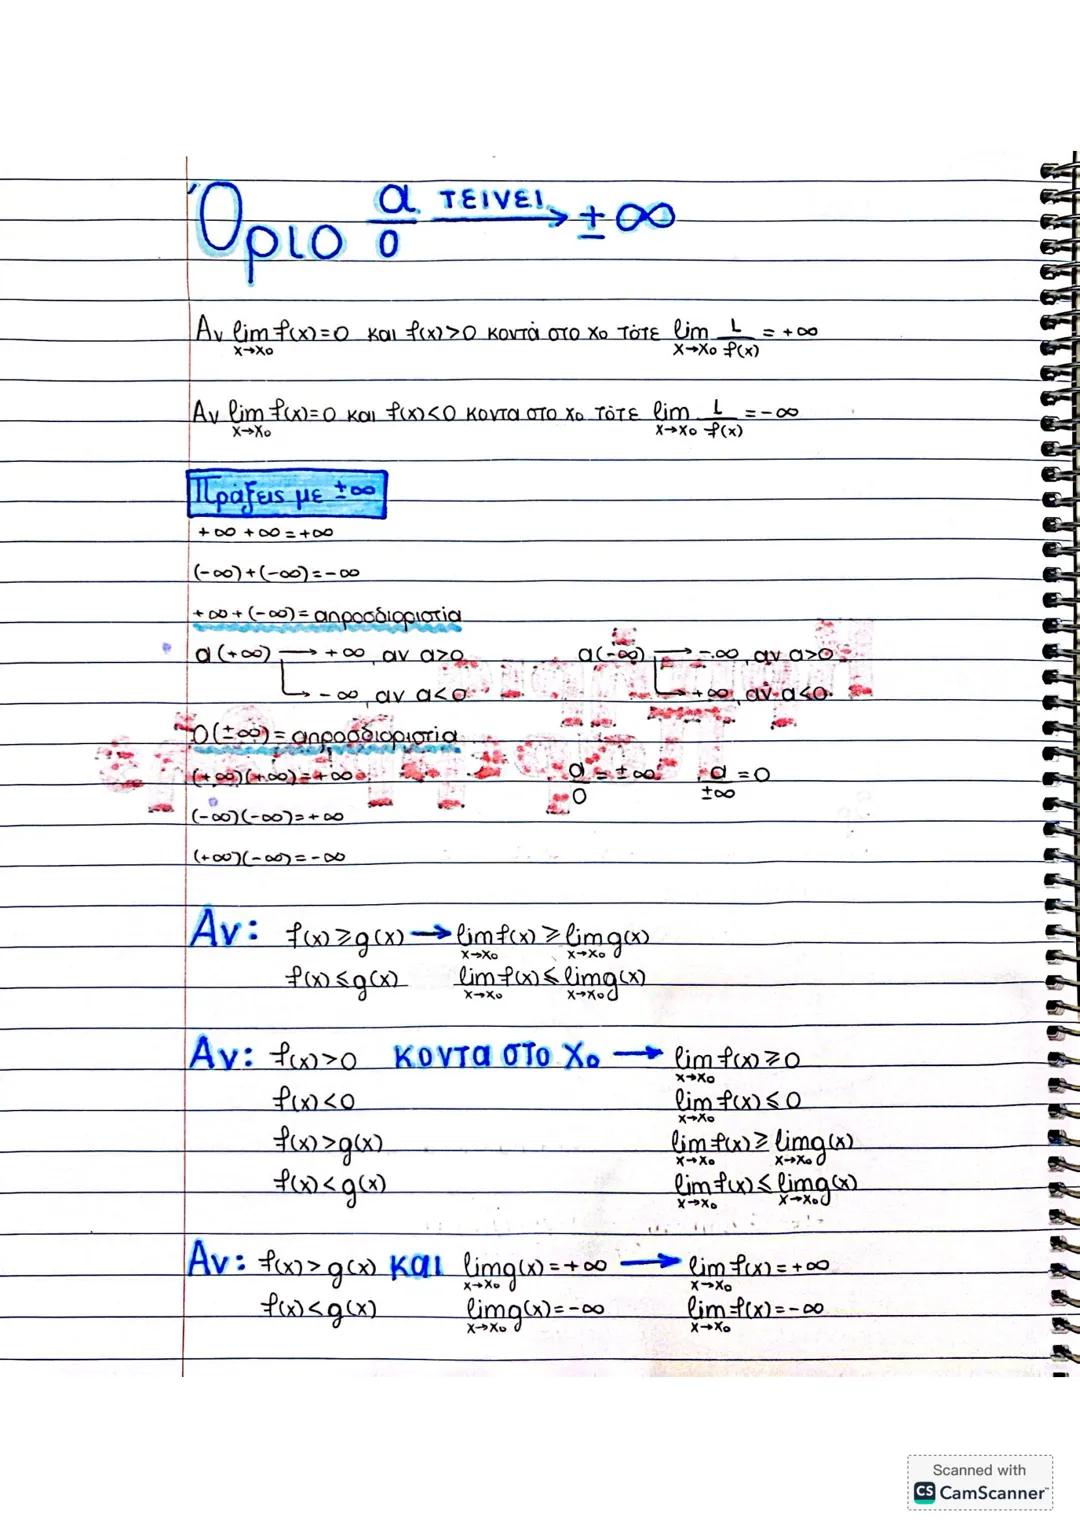 Όριο α/0 τείνει → ±∞
Αν lim x→x₀ f(x)=0 και f(x)>0 κοντά στο x₀ τότε lim x→x₀ 1/f(x) = +∞
Αν lim x→x₀ f(x)=0 και f(x)<0 κοντα στο x₀ τότε lim x→x₀ 1/f(x) = -∞
Πράξεις με ±∞
+∞ +∞ = +∞
(-∞)+(-∞)=-∞
+∞+(-∞)= απροσδιοριστία
α(+∞) → +∞, αν α>0 α(-∞) → -∞, αν α>0
→ -∞, αν α<0 → +∞, αν α<0
0(±∞)= απροσδιοριστία
(+∞)(+∞)=+∞ α/0 = ±∞ α/±∞ = 0
(-∞)(-∞)=+∞
(+∞)(-∞)=-∞
Αν: f(x)≥g(x) → lim x→x₀ f(x) ≥ lim x→x₀ g(x)
f(x)≤g(x) lim x→x₀ f(x) ≤ lim x→x₀ g(x)
Αν: f(x)>0 κοντα στο x₀ → lim x→x₀ f(x) ≥ 0
f(x)<0 lim x→x₀ f(x) ≤ 0
f(x)>g(x) lim x→x₀ f(x) ≥ lim x→x₀ g(x)
f(x)<g(x) lim x→x₀ f(x) ≤ lim x→x₀ g(x)
Αν: f(x)>g(x) και lim x→x₀ g(x)=+∞ → lim x→x₀ f(x)=+∞
f(x)<g(x) lim x→x₀ g(x)=-∞ lim x→x₀ f(x)=-∞
Scanned with
CS CamScanner